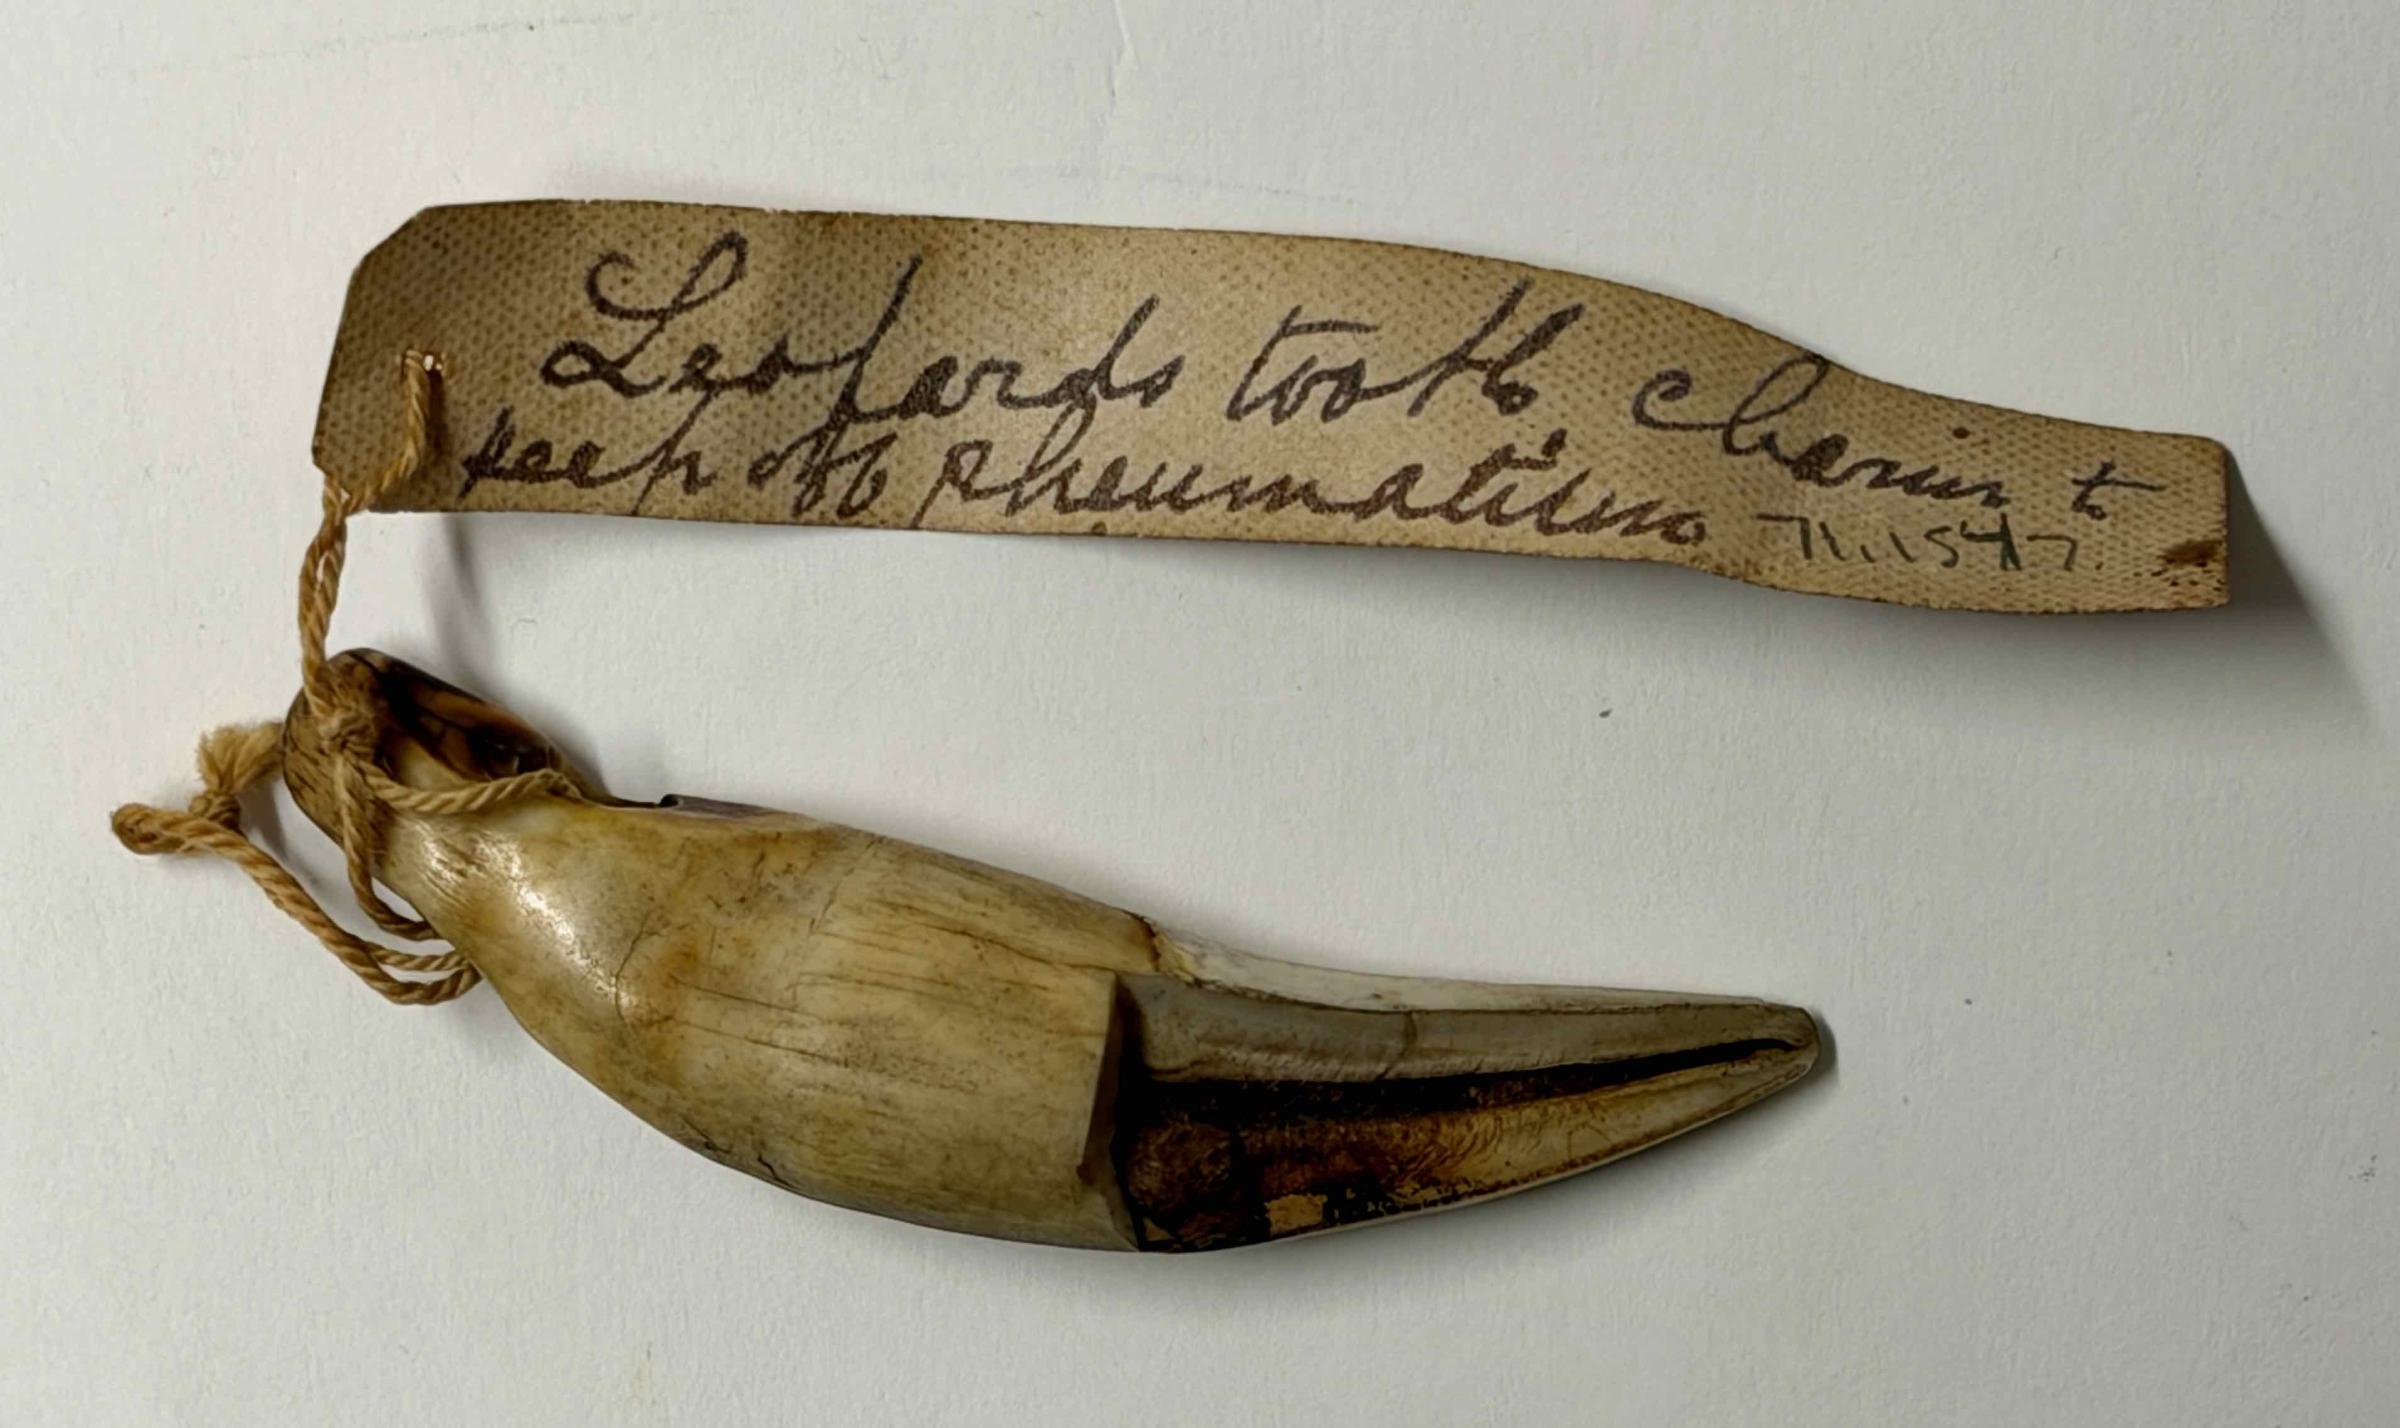 Leopards tooth charm to
keep off rheumatism
71.1547